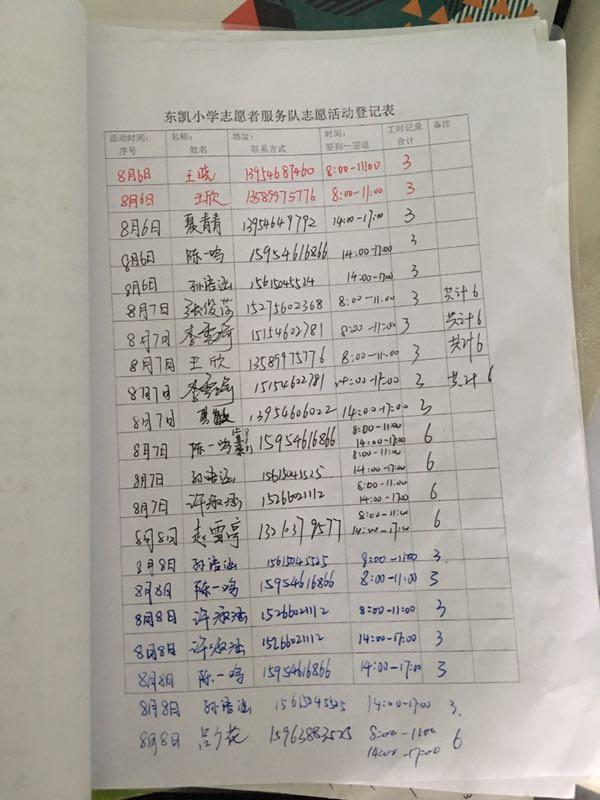 东凯小学志愿者服务队志愿活动登记表
活动时间: 名称: 地址: 时间: 工时记录 备注
序号 姓名 联系方式 签到—签退 合计
8月6日 王晓 13954687460 8:00-11:00 3
8月6日 王欣 13589975776 8:00-11:00 3
8月6日 夏青青 13954649792 14:00-17:00 3
8月6日 陈一鸣 15954616866 14:00-17:00 3
8月6日 孙语涵 15615045524 14:00-17:00 3
8月7日 张俊莎 15275602368 8:00-11:00 3 共计6
8月7日 李 15154602781 8:00-11:00 3 共计6
8月7日 王欣 13589975776 8:00-11:00 3 共计6
8月7日 李 15154602781 14:00-17:00 3 共计6
8月7日 夏敏 13954606022 14:00-17:00 3
8月7日 陈一鸣 15954616866 8:00-11:00 14:00-17:00 6
8月7日 孙语涵 15615045525 8:00-11:00 14:00-17:00 6
8月7日 许涵 15266021112 8:00-11:00 14:00-17:00 6
8月8日 赵雪亭 8:00-11:00 14:00-17:00 6
8月8日 孙语涵 15615045525 8:00-11:00 3.
8月8日 陈一鸣 15954616866 8:00-11:00 3
8月8日 许涵 15266021112 8:00-11:00 3
8月8日 许涵 15266021112 14:00-17:00 3
8月8日 陈一鸣 15954616866 14:00-17:00 3
8月8日 孙语涵 15615045525 14:00-17:00 3.
8月8日 吕 8:00-11:00 6
14:00-17:00